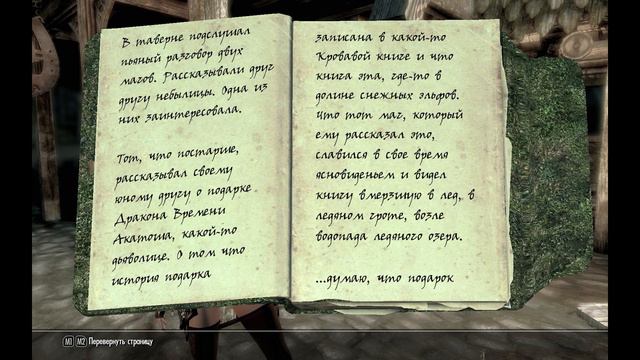 В таверне подслушал
пьяный разговор двух
магов. Рассказывали друг
другу небылицы. Одна из
них заинтересовала.
Тот, что постарше,
рассказывал своему
юному другу о подарке
Дракона Времени
Акатоша, какой-то
дьяволице. О том что
история подарка
записана в какой-то
Кровавой книге и что
книга эта, где-то в
долине снежных эльфов.
Что тот маг, который
ему рассказал это,
славился в свое время
ясновиденьем и видел
книгу вмерзшую в лед, в
ледяном гроте, возле
водопада ледяного озера.
...думаю, что подарок
M1 M2 Перевернуть страницу